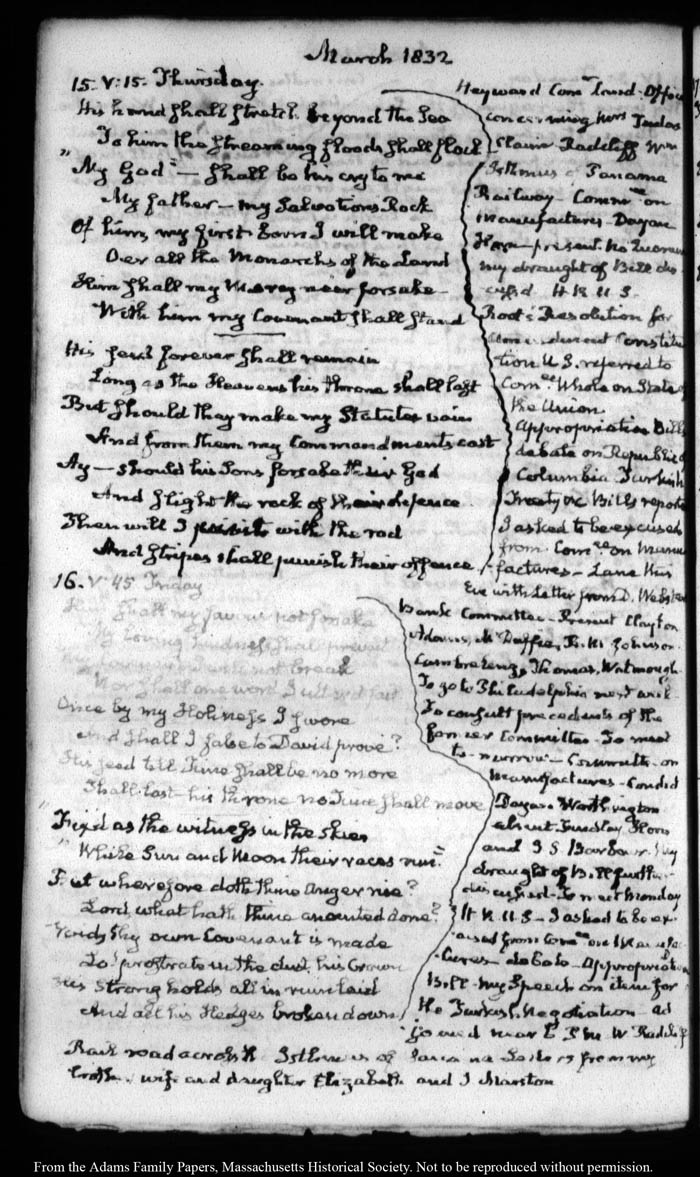 March 1832
15. V:15. Thursday.
His hand shall stretch beyond the Sea
To him the streaming floods shall flock
"My God" — shall be his cry to me
My father — my Salvation's Rock
Of him, my first born I will make
Oer all the Monarchs of the Land
Him shall my Mercy neer forsake
With him my Covenant shall stand
His seed forever shall remain
Long as the Heavens his throne shall last
But should they make my Statutes vain
And from them my Commandments cast
Ay — should his Sons forsake their God
And slight the rock of their defence
Then will I visit with the rod
And stripes shall punish their offence
Heyward Comr. Land-Office
concerning
Claim Radcliff Wm
Isthmus of Panama
Railway — Comm ee on
Manufactures — Dayan
Horn — present. No Quorum
my draught of Bill dis
cussed. H. R. U. S.
Root's Resolution for
amendment Constitu
tion U.S. referred to
Com ee Whole on State of
the Union
Appropriation Bill
debate on Republic of
Columbia Turkish
Treaty &c Bills reported
I asked to be excused
from Com ee on Manu
factures — Lane this
Eve with Letter from D. Webster
16. V:45 Friday
Him shall my favour not forsake
My loving kindness shall prevail
my covenant not break
Nor shall one word I uttered fail
Once by my Holiness I swore
And shall I false to David prove?
His seed till Time shall be no more
Shall last his throne no Time shall move
"Fix'd as the witness in the skies
While Sun and Moon their races run"
But wherefore doth thine anger rise?
Lord, what hath thine anointed done?
Void thy own Covenant is made
Lo! prostrate in the dust, his Crown
His strong holds all in ruin laid
And all his Hedges broken down
Bank Committee — Present Clayton
Adams, McDuffie, R. M. Johnson
Cambreleng, Thomas, Watmough
To go to Philadelphia next week
To consult precedents of the
former Committee. To meet
to-morrow — Committee on
Manufactures — Condict
Dayan. Worthington
absent Findlay Horn
and J S Barbour. My
draught of Bill further
discussed. To meet Monday
H R U S — I asked to be ex
cused from Com ee on Manufac
tures — debate — Appropriation
Bill — my Speech on item for
the Turkish Negotiation — ad
journed near 5 P.M. W Radcliff
Rail road across the Isthmus of Panama Letters from my
brother, wife and daughter Elizabeth and J Marston
From the Adams Family Papers, Massachusetts Historical Society. Not to be reproduced without permission.